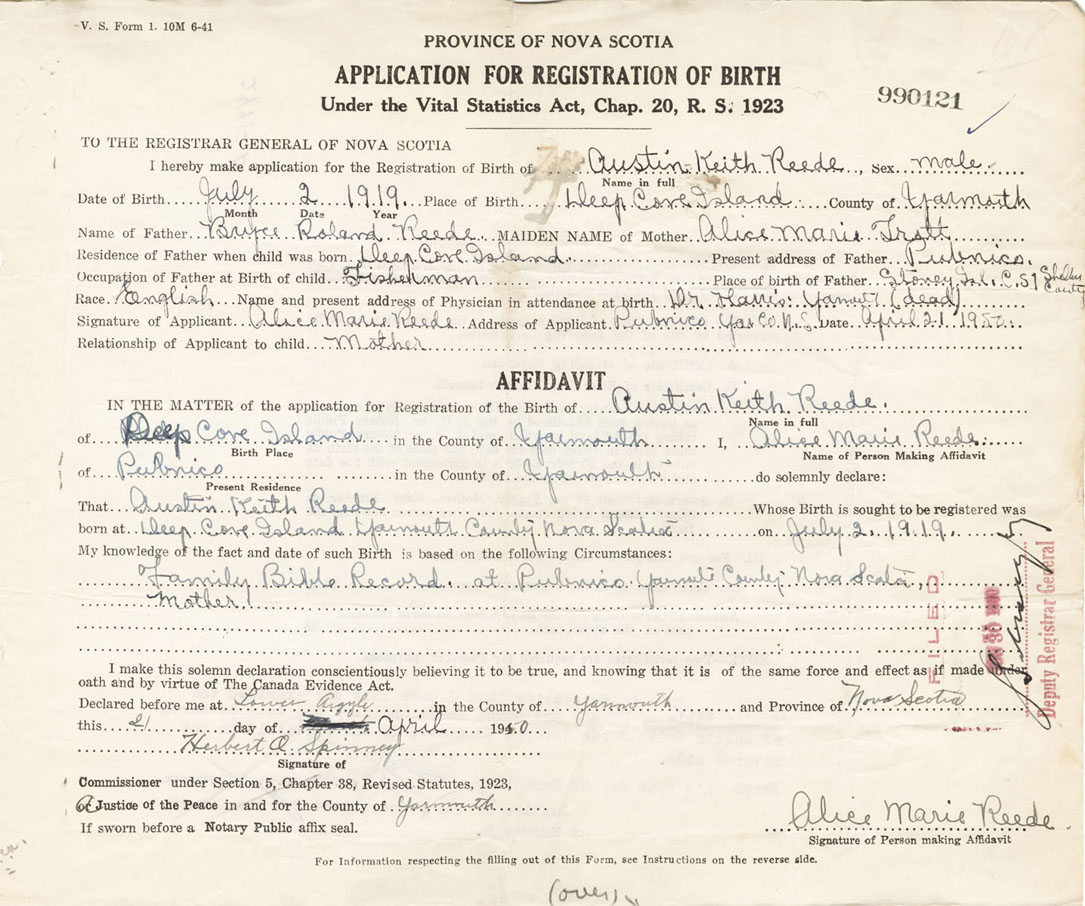 V. S. Form 1. 10M 6-41
PROVINCE OF NOVA SCOTIA
APPLICATION FOR REGISTRATION OF BIRTH
Under the Vital Statistics Act, Chap. 20, R. S. 1923
990121
TO THE REGISTRAR GENERAL OF NOVA SCOTIA
I hereby make application for the Registration of Birth of Austin Keith Reede, Sex male.
Name in full
Date of Birth July 2 1919. Place of Birth Deep Cove Island County of Yarmouth
Month Date Year
Name of Father Bryce Roland Reede MAIDEN NAME of Mother Alice Marie Trott
Residence of Father when child was born Deep Cove Island. Present address of Father Pubnico.
Occupation of Father at Birth of child Fisherman Place of birth of Father Stoney Isl. C.S.I Shelburne County
Race English Name and present address of Physician in attendance at birth Dr Harris: Yarmouth (dead)
Signature of Applicant Alice Marie Reede Address of Applicant Pubnico Yar. Co. N.S. Date April 21 19
Relationship of Applicant to child Mother
AFFIDAVIT
IN THE MATTER of the application for Registration of the Birth of Austin Keith Reede.
Name in full
of Deep Cove Island in the County of Yarmouth I, Alice Marie Reede
Birth Place Name of Person Making Affidavit
of Pubnico in the County of Yarmouth do solemnly declare:
Present Residence
That Austin Keith Reede Whose Birth is sought to be registered was
born at Deep Cove Island Yarmouth County Nova Scotia on July 2. 1919.
My knowledge of the fact and date of such Birth is based on the following Circumstances:
Family Bible Record. at Pubnico Yarmouth County Nova Scotia,
Mother
FILED
Deputy Registrar General
I make this solemn declaration conscientiously believing it to be true, and knowing that it is of the same force and effect as if made under
oath and by virtue of The Canada Evidence Act.
Declared before me at Lower Argyle in the County of Yarmouth and Province of Nova Scotia
this 21 day of April 19
Herbert A Spinney
Signature of
Commissioner under Section 5, Chapter 38, Revised Statutes, 1923,
A Justice of the Peace in and for the County of Yarmouth
If sworn before a Notary Public affix seal.
Alice Marie Reede.
Signature of Person making Affidavit
For Information respecting the filling out of this Form, see Instructions on the reverse side.
(over)